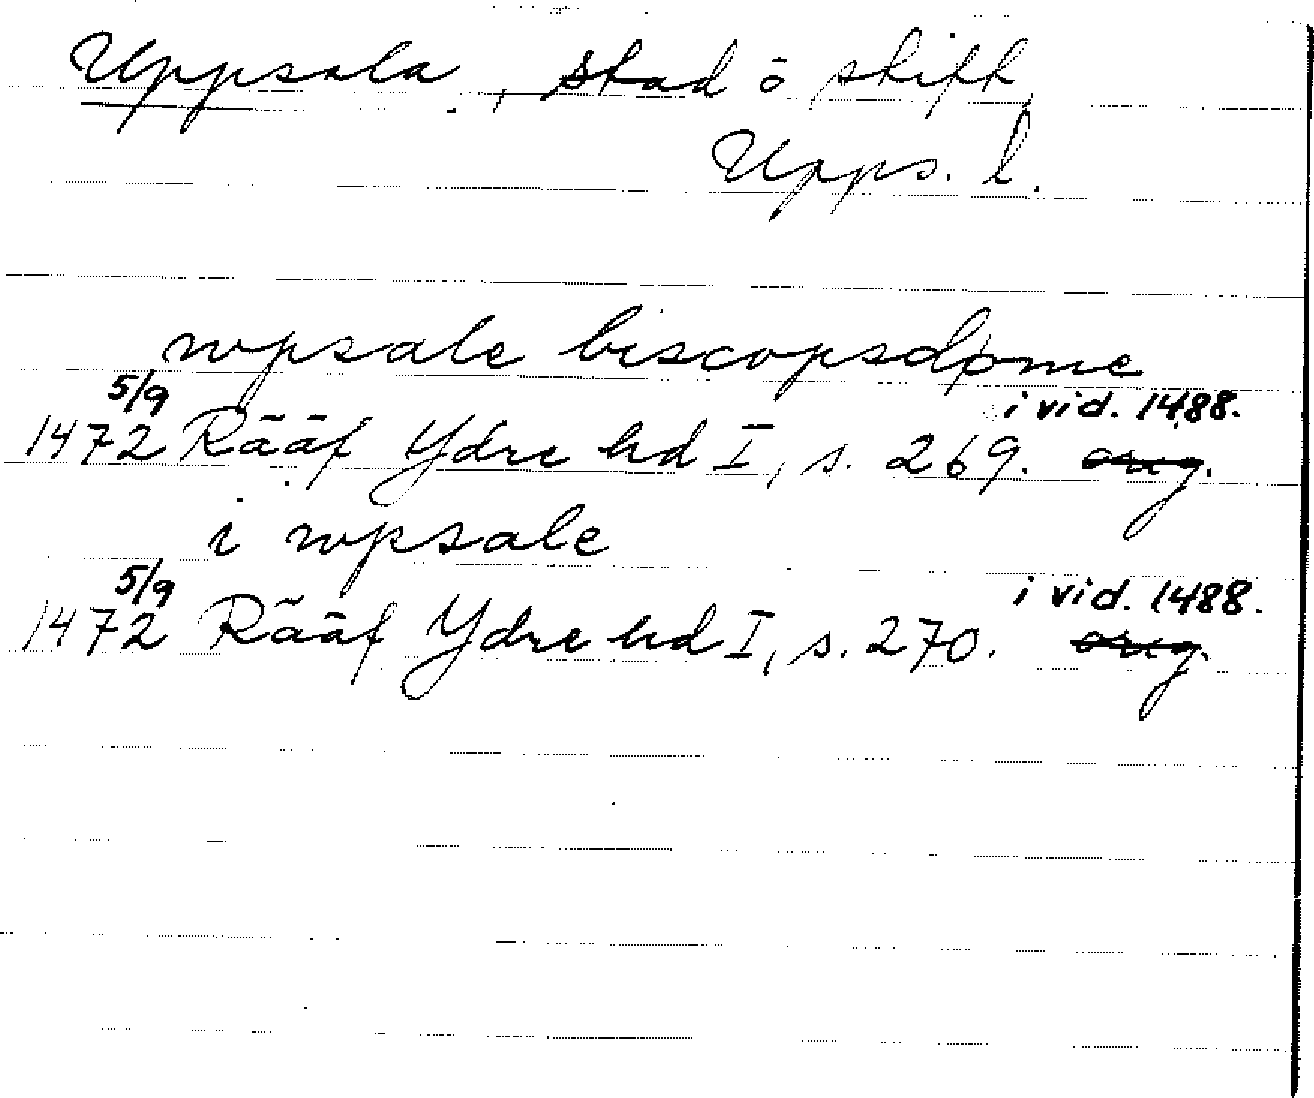 Uppsala, stad o skift
Upps. l.
wpsale biscopsdøme
5/9 i vid. 1488.
1472 Rääf Ydre hd I, s. 269. orig.
i wpsale
5/9 i vid. 1488.
1472 Rääf Ydre hd I, s. 270. orig.